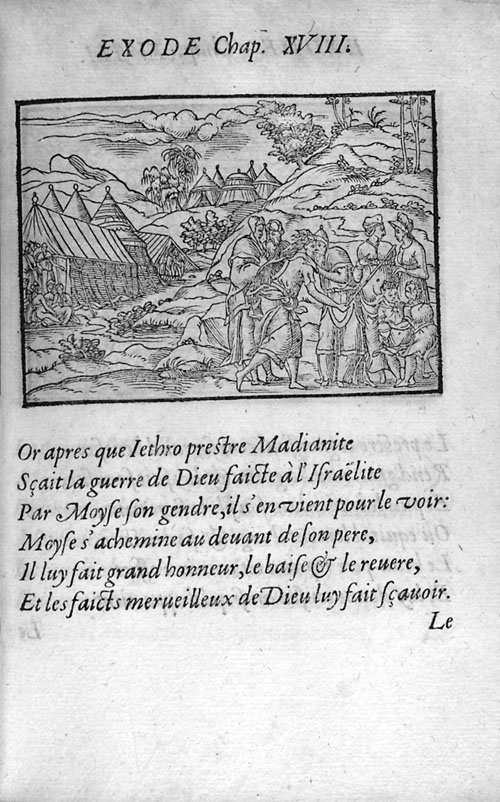 EXODE Chap. XVIII.
Or apres que Iethro prestre Madianite
Sçait la guerre de Dieu faicte à l'Israëlite
Par Moyse son gendre, il s'en vient pour le voir:
Moyse s'achemine au devant de son pere,
Il luy fait grand honneur, le baise & le revere,
Et les faicts merueilleux de Dieu luy fait sçauoir.
Le